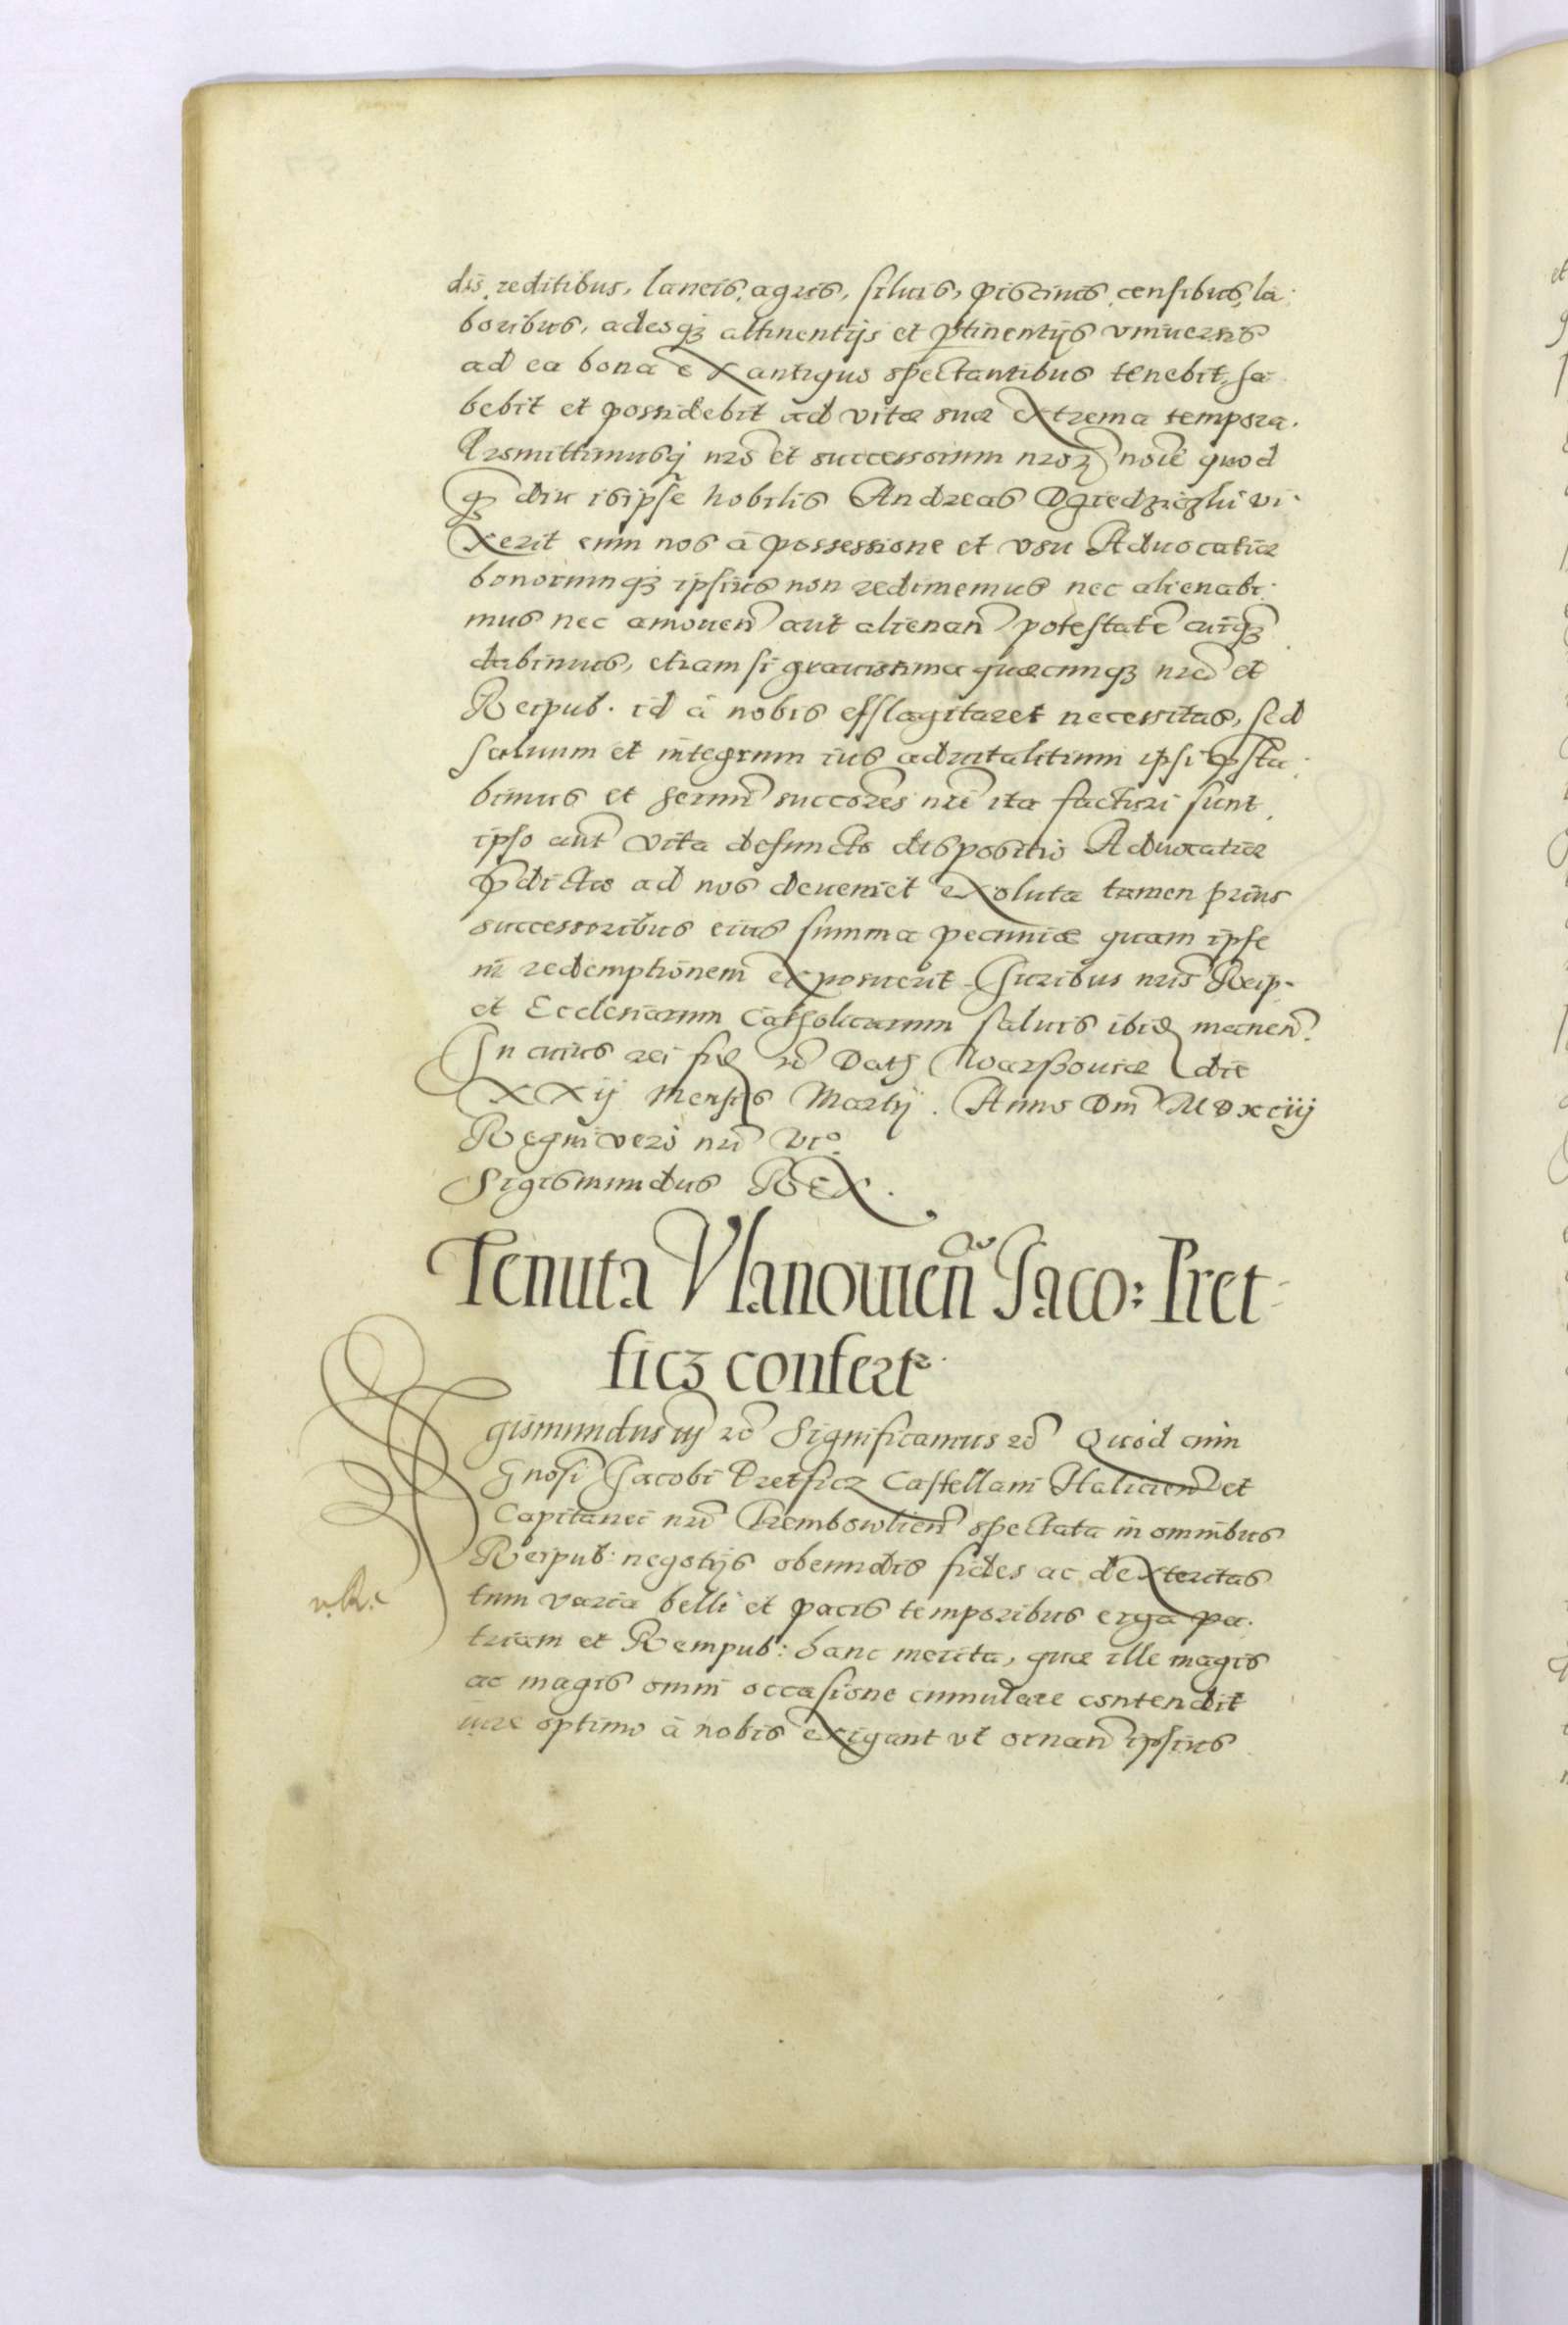 dis, reditibus, laneis, agris, siluis, piscinis, censibus, la:
boribus, adesq3 attinentijs et ptinentijs vniuersis
ad ea bona ex antiquo spectantibus tenebit, ha
bebit et possidebit ad vitæ suæ extrema tempora.
Promittimusq3 nrō et successorum nrorȝ noīe quod
qȝ diu isipse nobilis Andreas vi:
xerit eum nos à possessione et vsu Aduocatiæ
bonorumq3 ipsius non redimemus nec alienabi:
mus nec amouen̄ aut alienan̄ potestatē cuiqȝ
dabimus, etiam si grauissima quæcunq3 nrā et
Reipub. id à nobis efflagitaret necessitas, sed
saluum et integrum ius aduitalitium ipsi psta:
bimus et sermī succores nrī ita facturi sunt,
ipso aut̄ vita defuncto dispositio Aduocatiæ
pdictæ ad nos deueniet exoluta tamen prius
successoribus eius summa pecuniæ quam ipse
in redemptionem exposuerit. Iuribus nris̄ Reip.
et Ecclesiarum Catholicarum saluis ibid manen̄.
In cuius rei fid rc̄ Dat Warssouiæ die
XXij Mensis Martij. Anno Dm̄ MDxciij
Regni vero nrī vi°.
Sigismundus REX.
Tenuta Vlanouien̄ Gnōso Jaco: Pret
ficz confertr.
Sigismundus iij rc̄ Significamus rc̄ Quod cum
Gnosī Jacobi Pretficz Castellani Halicien̄ et
Capitanei nrī Trembowlien̄ spectata in omnibus
Reipub: negotijs obeundis fides ac dexteritas
tum varia belli et pacis temporibus erga pa:
triam et Rempub: hanc merita, quæ ille magis
ac magis omni occasione cumulare contendit
iure optimo à nobis exigant vt ornan̄ ipsius